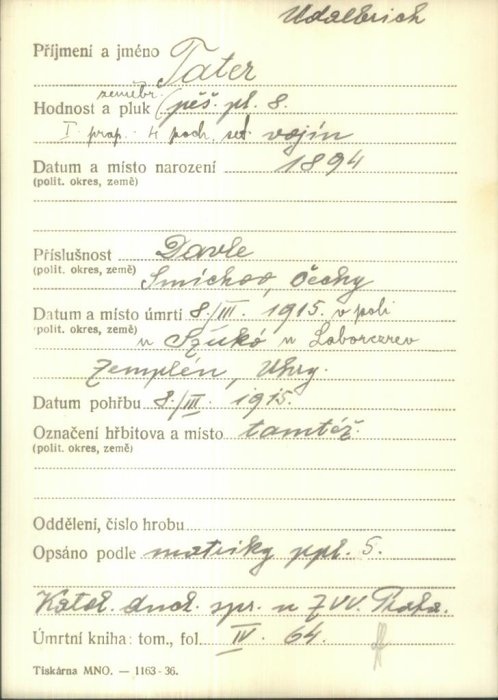 Udalbrich
Příjmení a jméno Tater
zeměbr.
Hodnost a pluk (pěš. pl. 8.
I prap. 4 poch. set. vojín
Datum a místo narození 1894
(polit. okres, země)
Příslušnost Davle
(polit. okres, země) Smíchov, Čechy
Datum a místo úmrtí 8./III. 1915. v poli
(polit. okres, země) u Szúkó u Laborczrev
Zemplén, Uhry.
Datum pohřbu 8./III. 1915.
Označení hřbitova a místo tamtéž.
(polit. okres, země)
Oddělení, číslo hrobu
Opsáno podle matriky ppl. 5.
Katol. duch. spr. u ZVV. Praha.
Úmrtní kniha: tom., fol. IV. 64.
Tiskárna MNO. — 1163-36.